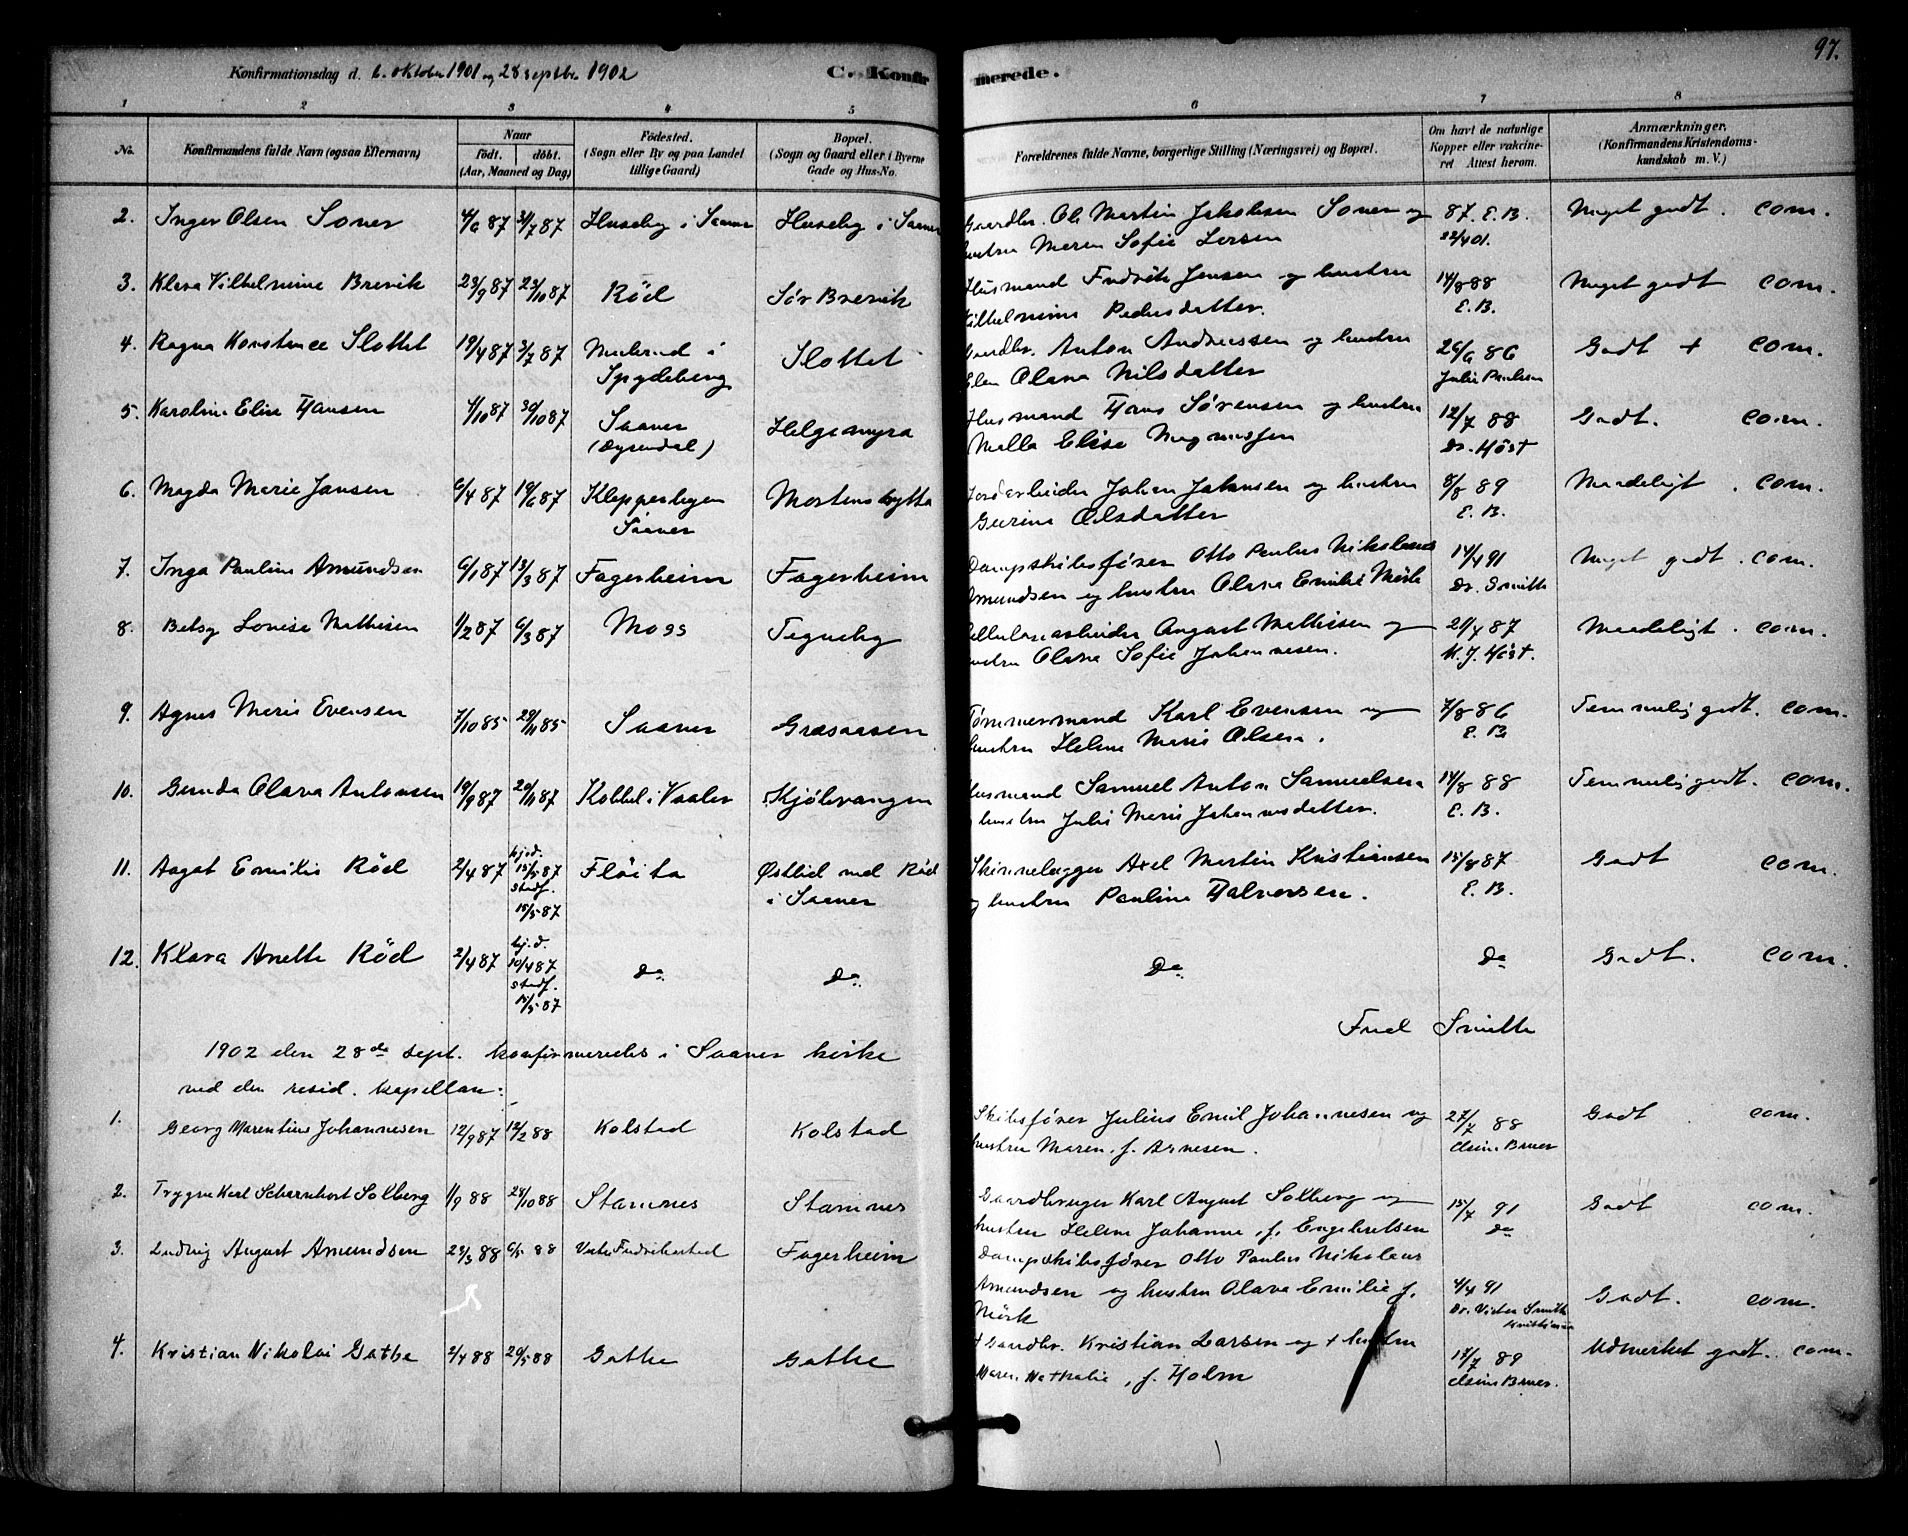 97.
Konfirmationsdag d. 6. oktober 1901 og 28 septbr 1902 C. Konfirmerede.
1 2 3 4 5 6 7 8
No. Konfirmandens fulde Navn (ogsaa Efternavn) Naar født. døbt. (Aar, Maaned og Dag) Fødested. (Sogn eller By og paa Landet tillige Gaard) Bopæl. (Sogn og Gaard eller i Byerne Gade og Hus-No. Forældrenes fulde Navne, borgerlige Stilling (Næringsvei) og Bopæl. Om havt de naturlige Kopper eller vaccineret Attest herom. Anmærkninger. (Konfirmandens Kristendomskundskab m. V.)
2. Inger Olsen Soner 4/6 87 31/7 87 Huseby i Saaner Huseby i Saaner Gaardbr. Ole Martin Jakobsen Soner og 87. E. B. Meget godt. com.
hustru Maren Sofie Larsen 22/4 01.
3. Klara Vilhelmine Brevik 23/9 87 23/10 87 Röd Sör Brevik Husmand Fredrik Jensen og hustru 14/8 88 Meget godt com.
Vilhelmine Pedersdatter. E. B.
4. Ragna Konstance Slottet 19/4 87 3/7 87 Spydeberg Slottet Gaardbr. Anton Andreassen og hustru 26/6 86 Godt + com.
Elen Olava Nilsdatter Julie Paulsen
5. Karoline Elise Hansen 4/10 87 30/10 87 Saaner Helgemyra Husmand Hans Sörensen og hustru 12/7 88 Godt. com.
Malla Elise Magnussen Dr. Höst
6. Magda Marie Jansen 6/4 87 19/6 87 Klepperhagen Saaner Mortenshytta Jordarbeider Johan Jakobsen og hustru 8/8 89 Maadeligt. com.
Gurine Olsdatter E. B.
7. Inga Pauline Amundsen 6/1 87 13/3 87 Fagerheim Fagerheim Dampskibsförer Otto Paulus Nikolaus 14/4 91 Meget godt. com.
Amundsen og hustru Olava Emilie Mörk Dr. Smith
8. Betsy Lovise Mathisen 1/2 87 6/3 87 Moss Tegneby Cellulosearbeider August Mathisen og 21/7 87 Maadeligt. com.
hustru Olava Sofie Johannesen. M. J. Höst.
9. Agnes Marie Evensen 7/10 85 29/11 85 Saaner Græsaasen Tömmermand Karl Evensen og 7/8 86 Temmelig godt. com.
hustru Helene Marie Olsen. E. B
10. Gunda Olava Antonsen 19/9 87 20/11 87 Kobbel i Vaaler Kjölevangen Husmand Samuel Anton Samuelsen 14/8 88 Temmelig godt. com.
og hustru Julie Marie Johannesdatter. E. B.
11. Aagot Emilie Röd 2/4 87 hj.d. 15/5 87 stadf. 15/5 87 Flöita Østlid ved Röd i Saaner Skinnelægger Axel Martin Kristiansen 15/8 87 Godt com.
og hustru Pauline Halvorsen. E. B.
12. Klara Anette Röd 2/4 87 hj.d. 30/4 87 stadf. 15/5 87 Do Do. Do Do Godt. com.
Fred Smith
1902 den 28de sept. konfirmeredes i Saaner kirke
ved den resid. kapellan:
1. Georg Marentius Johannesen 12/9 87 12/2 88 Kolstad Kolstad Skibsförer Julius Emil Johannesen og 27/7 88 Godt com.
hustru Maren, f. Arnesen. Elsine Bruer
2. Trygve Karl Scharnhorst Solberg 1/9 88 28/10 88 Stamnes Stamnes Gaardbruger Karl August Solberg og 15/7 91 Godt com.
hustru Helene Johanne, f. Engebretsen do
3. Ludvig August Amundsen 23/3 88 6/5 88 Vestre Fredrikstad Fagerheim Dampskibsförer Otto Paulus Nikolaus
Amundsen og hustru Olava Emilie f. 4/4 91 Godt. com.
Mörk Dr. Victor Smith Kristiania
4. Kristian Nikolai Gathe 2/4 88 20/5 88 Gathe Gathe + Gaardbr. Kristian Larsen og + hustru 17/7 89 Udmerket godt. com.
Maren Nathalie, f. Holm Elsine Bruer.